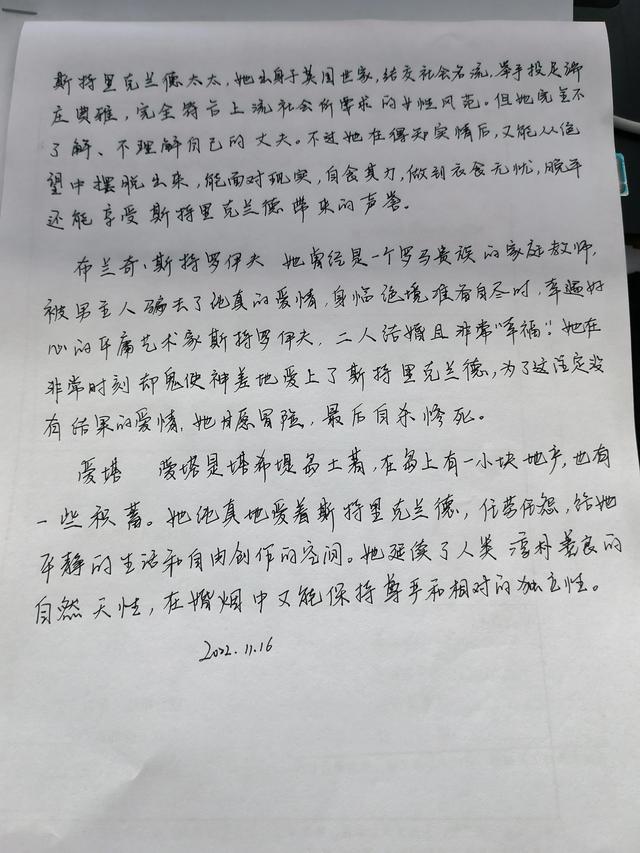 斯特里克兰德太太,她出身于英国世家,结交社会名流,举手投足端
庄典雅,完全符合上流社会所要求的女性风范。但她完全不
了解、不理解自己的丈夫。不过她在得知实情后,又能从绝
望中摆脱出来,能面对现实,自食其力,做到衣食无忧,晚年
还能享受斯特里克兰德带来的声誉。
布兰奇、斯特罗伊夫 她曾经是一个罗马贵族的家庭教师,
被男主人骗去了纯真的爱情,身临绝境准备自尽时,幸遇好
心的平庸艺术家斯特罗伊夫,二人结婚且非常"幸福"。她在
非常时刻却鬼使神差地爱上了斯特里克兰德,为了这注定没
有结果的爱情,她甘愿冒险,最后自杀惨死。
爱塔 爱塔是塔希提岛土著,在岛上有一小块地产,也有
一些积蓄。她纯真地爱着斯特里克兰德,任劳任怨,给她
平静的生活和自由创作的空间。她延续了人类淳朴善良的
自然天性,在婚烟中又能保持尊严和相对的独立性。
2022.11.16